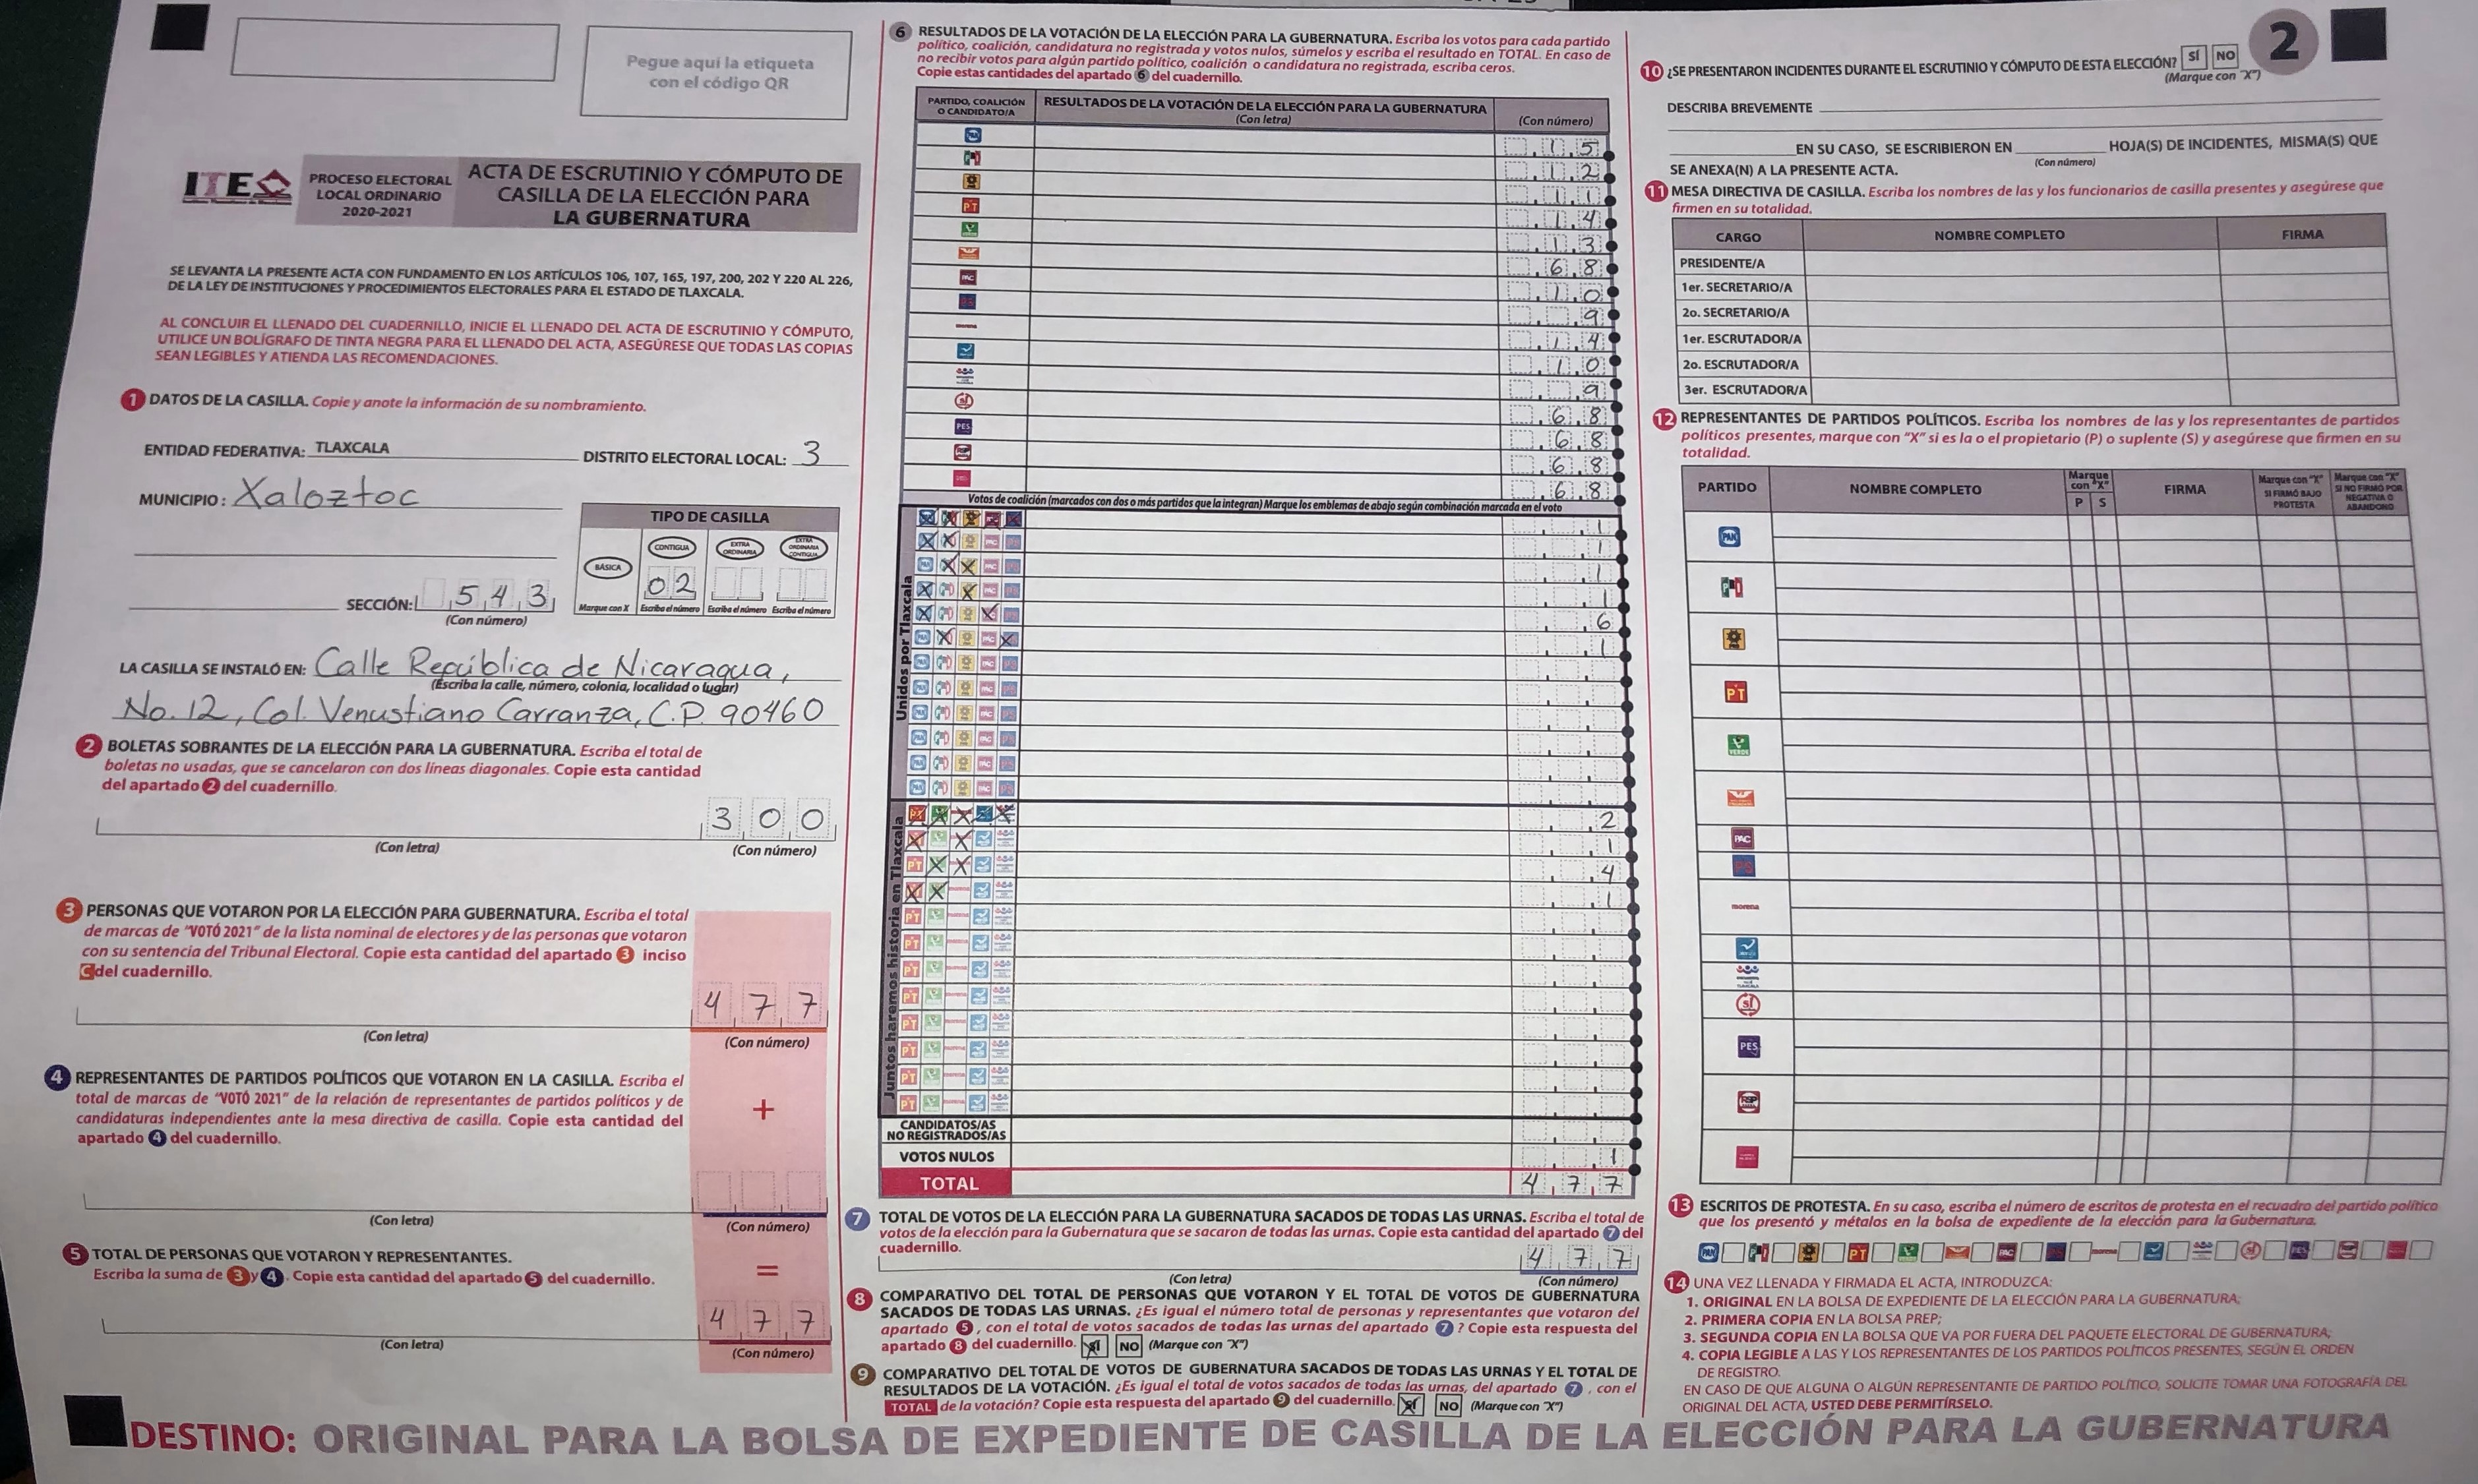 Pegue aquí la etiqueta
con el código QR
ITE
PROCESO ELECTORAL
LOCAL ORDINARIO
2020-2021
ACTA DE ESCRUTINIO Y CÓMPUTO DE
CASILLA DE LA ELECCIÓN PARA
LA GUBERNATURA
SE LEVANTA LA PRESENTE ACTA CON FUNDAMENTO EN LOS ARTÍCULOS 106, 107, 165, 197, 200, 202 Y 220 AL 226,
DE LA LEY DE INSTITUCIONES Y PROCEDIMIENTOS ELECTORALES PARA EL ESTADO DE TLAXCALA.
AL CONCLUIR EL LLENADO DEL CUADERNILLO, INICIE EL LLENADO DEL ACTA DE ESCRUTINIO Y CÓMPUTO,
UTILICE UN BOLÍGRAFO DE TINTA NEGRA PARA EL LLENADO DEL ACTA, ASEGÚRESE QUE TODAS LAS COPIAS
SEAN LEGIBLES Y ATIENDA LAS RECOMENDACIONES.
1 DATOS DE LA CASILLA. Copie y anote la información de su nombramiento.
ENTIDAD FEDERATIVA: TLAXCALA DISTRITO ELECTORAL LOCAL: 3
MUNICIPIO: Xaloztoc
TIPO DE CASILLA
BÁSICA CONTIGUA EXTRA ORDINARIA EXTRA ORDINARIA CONTIGUA
02
Marque con X Escriba el número Escriba el número Escriba el número
SECCIÓN: 543
(Con número)
LA CASILLA SE INSTALÓ EN: Calle República de Nicaragua,
(Escriba la calle, número, colonia, localidad o lugar)
No. 12, Col. Venustiano Carranza, C.P. 90460
2 BOLETAS SOBRANTES DE LA ELECCIÓN PARA LA GUBERNATURA. Escriba el total de
boletas no usadas, que se cancelaron con dos líneas diagonales. Copie esta cantidad
del apartado 2 del cuadernillo.
300
(Con letra) (Con número)
3 PERSONAS QUE VOTARON POR LA ELECCIÓN PARA GUBERNATURA. Escriba el total
de marcas de "VOTÓ 2021" de la lista nominal de electores y de las personas que votaron
con su sentencia del Tribunal Electoral. Copie esta cantidad del apartado 3 inciso
C del cuadernillo.
477
(Con letra) (Con número)
4 REPRESENTANTES DE PARTIDOS POLÍTICOS QUE VOTARON EN LA CASILLA. Escriba el
total de marcas de "VOTÓ 2021" de la relación de representantes de partidos políticos y de
candidaturas independientes ante la mesa directiva de casilla. Copie esta cantidad del
apartado 4 del cuadernillo.
+
(Con letra) (Con número)
5 TOTAL DE PERSONAS QUE VOTARON Y REPRESENTANTES.
Escriba la suma de 3 y 4. Copie esta cantidad del apartado 5 del cuadernillo.
=
477
(Con letra) (Con número)
6 RESULTADOS DE LA VOTACIÓN DE LA ELECCIÓN PARA LA GUBERNATURA. Escriba los votos para cada partido
político, coalición, candidatura no registrada y votos nulos, súmelos y escriba el resultado en TOTAL. En caso de
no recibir votos para algún partido político, coalición o candidatura no registrada, escriba ceros.
Copie estas cantidades del apartado 6 del cuadernillo.
PARTIDO, COALICIÓN
O CANDIDATO/A
RESULTADOS DE LA VOTACIÓN DE LA ELECCIÓN PARA LA GUBERNATURA
(Con letra) (Con número)
PAN 15
PRI 12
11
PT 14
VERDE 13
68
PAC 10
PS 9
morena 14
10
9
SÍ 68
PES 68
RSP 68
68
Votos de coalición (marcados con dos o más partidos que la integran) Marque los emblemas de abajo según combinación marcada en el voto
Unidos por Tlaxcala
1
1
1
1
6
1
Juntos haremos historia en Tlaxcala
2
1
4
1
CANDIDATOS/AS
NO REGISTRADOS/AS
VOTOS NULOS 1
TOTAL 477
7 TOTAL DE VOTOS DE LA ELECCIÓN PARA LA GUBERNATURA SACADOS DE TODAS LAS URNAS. Escriba el total de
votos de la elección para la Gubernatura que se sacaron de todas las urnas. Copie esta cantidad del apartado 7 del
cuadernillo.
477
(Con letra) (Con número)
8 COMPARATIVO DEL TOTAL DE PERSONAS QUE VOTARON Y EL TOTAL DE VOTOS DE GUBERNATURA
SACADOS DE TODAS LAS URNAS. ¿Es igual el número total de personas y representantes que votaron del
apartado 5, con el total de votos sacados de todas las urnas del apartado 7? Copie esta respuesta del
apartado 8 del cuadernillo. SÍ NO (Marque con "X")
9 COMPARATIVO DEL TOTAL DE VOTOS DE GUBERNATURA SACADOS DE TODAS LAS URNAS Y EL TOTAL DE
RESULTADOS DE LA VOTACIÓN. ¿Es igual el total de votos sacados de todas las urnas, del apartado 7, con el
TOTAL de la votación? Copie esta respuesta del apartado 9 del cuadernillo. SÍ NO (Marque con "X")
2
10 ¿SE PRESENTARON INCIDENTES DURANTE EL ESCRUTINIO Y CÓMPUTO DE ESTA ELECCIÓN? SÍ NO
(Marque con "X")
DESCRIBA BREVEMENTE
EN SU CASO, SE ESCRIBIERON EN HOJA(S) DE INCIDENTES, MISMA(S) QUE
(Con número)
SE ANEXA(N) A LA PRESENTE ACTA.
11 MESA DIRECTIVA DE CASILLA. Escriba los nombres de las y los funcionarios de casilla presentes y asegúrese que
firmen en su totalidad.
CARGO NOMBRE COMPLETO FIRMA
PRESIDENTE/A
1er. SECRETARIO/A
2o. SECRETARIO/A
1er. ESCRUTADOR/A
2o. ESCRUTADOR/A
3er. ESCRUTADOR/A
12 REPRESENTANTES DE PARTIDOS POLÍTICOS. Escriba los nombres de las y los representantes de partidos
políticos presentes, marque con "X" si es la o el propietario (P) o suplente (S) y asegúrese que firmen en su
totalidad.
PARTIDO NOMBRE COMPLETO Marque con "X" P S FIRMA Marque con "X" SI FIRMÓ BAJO PROTESTA Marque con "X" SI NO FIRMÓ POR NEGATIVA O ABANDONO
PAN
PRI
PRD
PT
VERDE
PAC
PS
morena
SÍ
PES
RSP
13 ESCRITOS DE PROTESTA. En su caso, escriba el número de escritos de protesta en el recuadro del partido político
que los presentó y métalos en la bolsa de expediente de la elección para la Gubernatura.
14 UNA VEZ LLENADA Y FIRMADA EL ACTA, INTRODUZCA:
1. ORIGINAL EN LA BOLSA DE EXPEDIENTE DE LA ELECCIÓN PARA LA GUBERNATURA;
2. PRIMERA COPIA EN LA BOLSA PREP;
3. SEGUNDA COPIA EN LA BOLSA QUE VA POR FUERA DEL PAQUETE ELECTORAL DE GUBERNATURA;
4. COPIA LEGIBLE A LAS Y LOS REPRESENTANTES DE LOS PARTIDOS POLÍTICOS PRESENTES, SEGÚN EL ORDEN
DE REGISTRO.
EN CASO DE QUE ALGUNA O ALGÚN REPRESENTANTE DE PARTIDO POLÍTICO, SOLICITE TOMAR UNA FOTOGRAFÍA DEL
ORIGINAL DEL ACTA, USTED DEBE PERMITÍRSELO.
DESTINO: ORIGINAL PARA LA BOLSA DE EXPEDIENTE DE CASILLA DE LA ELECCIÓN PARA LA GUBERNATURA